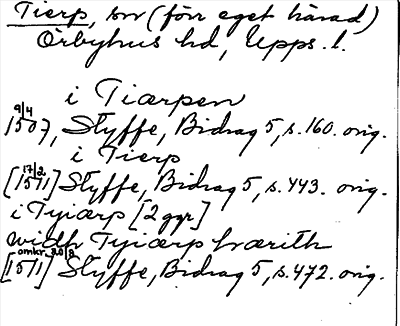 Tierp, sn (förr eget härad)
Örbyhus hd, Upps. l.
i Tiærpen
9/4
1507, Styffe, Bidrag 5, s. 160. orig.
i Tierp
17/2
[1511] Styffe, Bidrag 5, s. 443. orig.
i Tyiærp [2 ggr]
widh Tyiærp hærith
omkr. 20/8
[1511] Styffe, Bidrag 5, s. 472. orig.